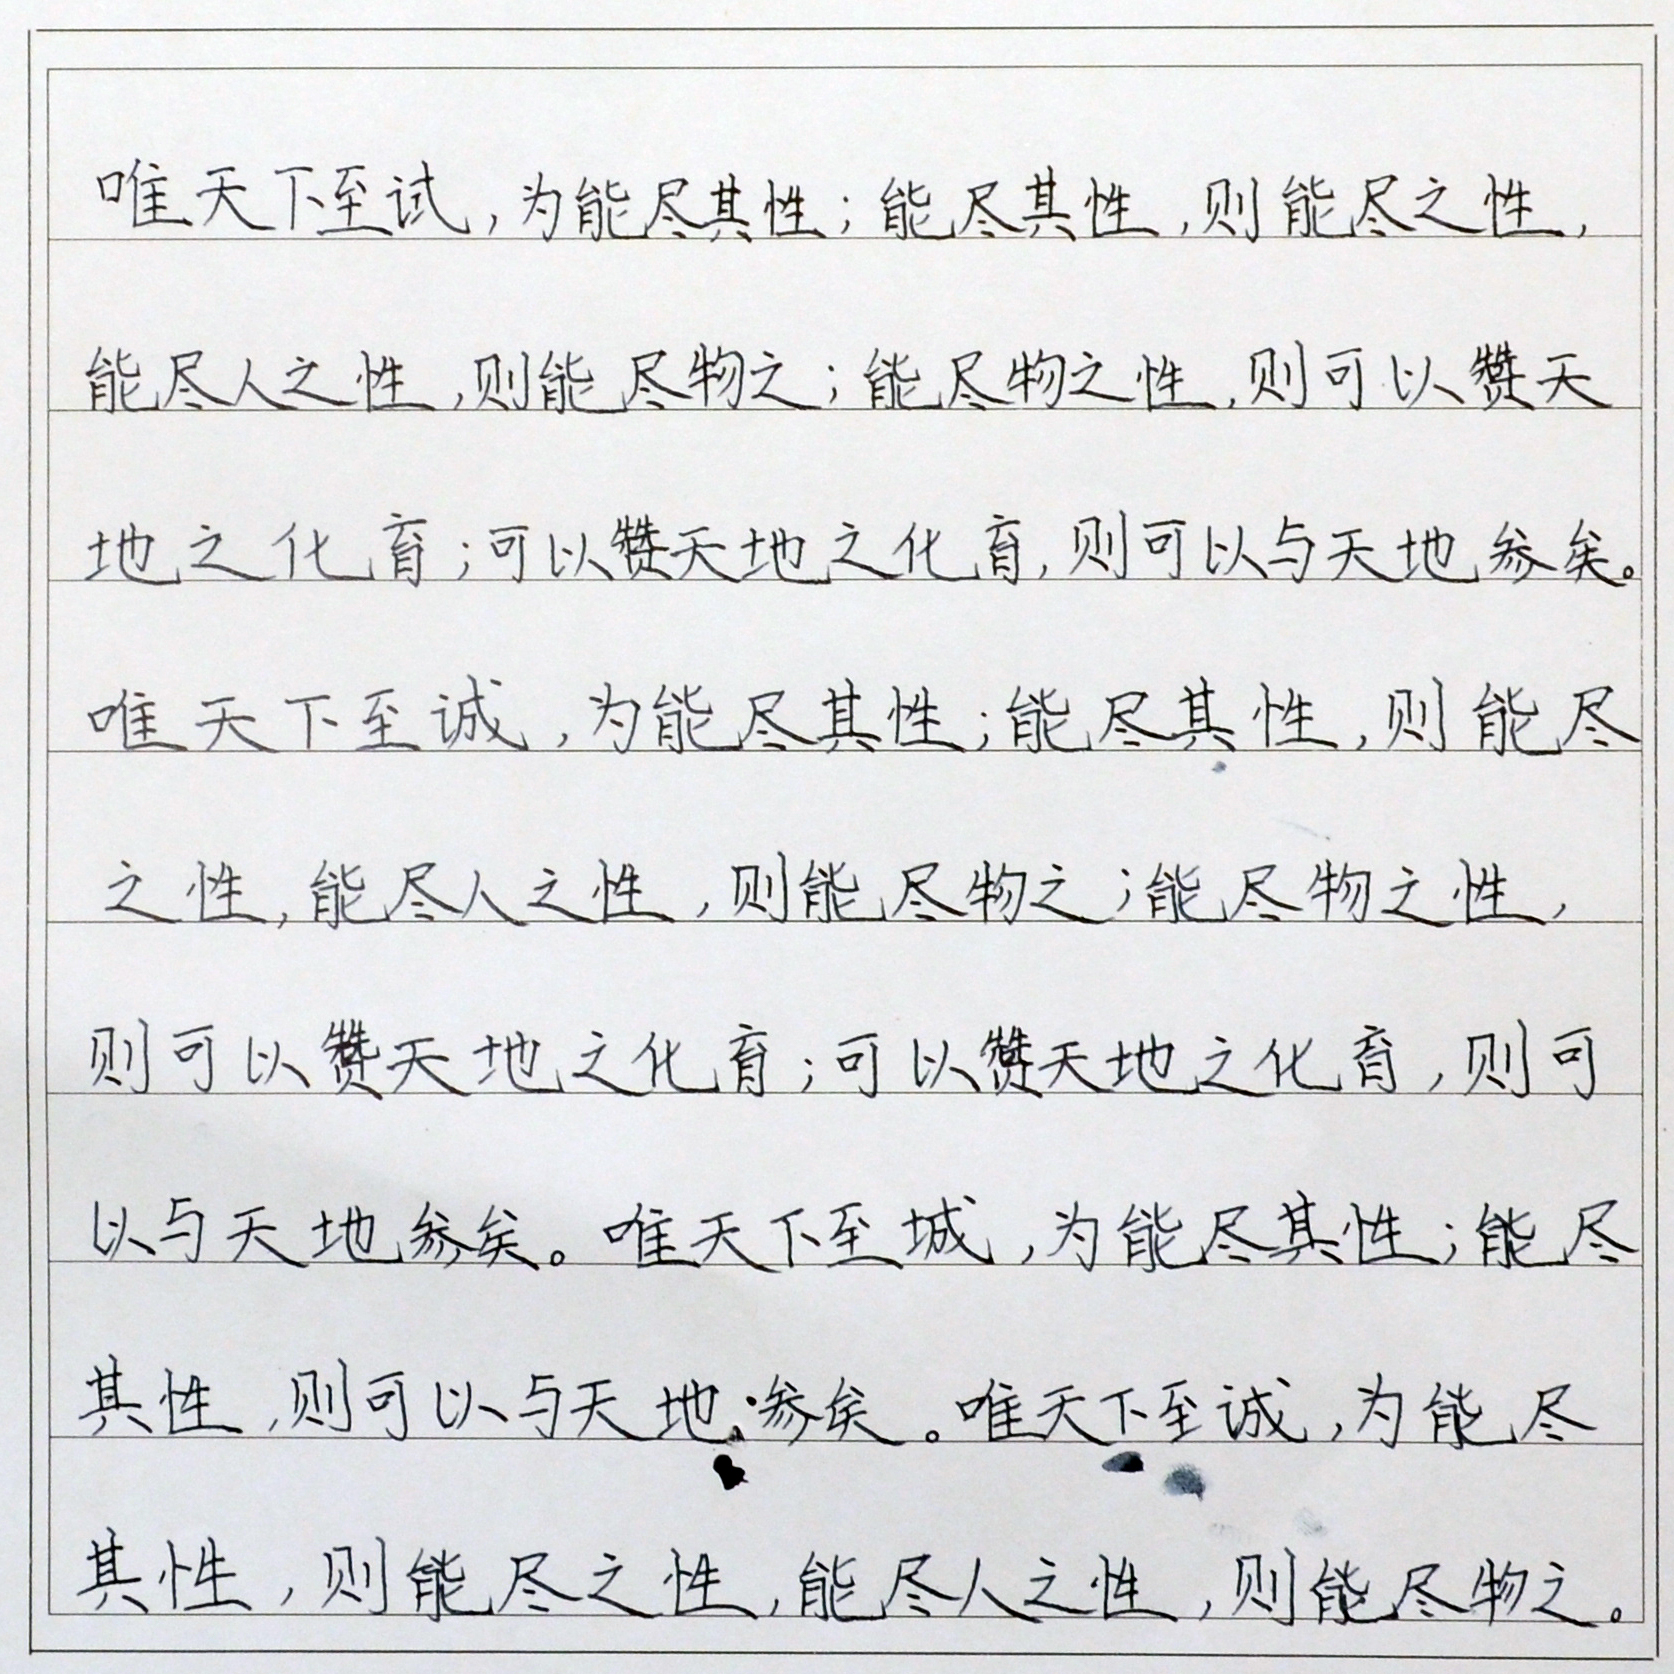 唯天下至试,为能尽其性;能尽其性,则能尽之性,
能尽人之性,则能尽物之;能尽物之性,则可以赞天
地之化育;可以赞天地之化育,则可以与天地参矣。
唯天下至诚,为能尽其性;能尽其性,则能尽
之性,能尽人之性,则能尽物之;能尽物之性,
则可以赞天地之化育;可以赞天地之化育,则可
以与天地参矣。唯天下至城,为能尽其性;能尽
其性,则可以与天地参矣。唯天下至诚,为能尽
其性,则能尽之性,能尽人之性,则能尽物之。